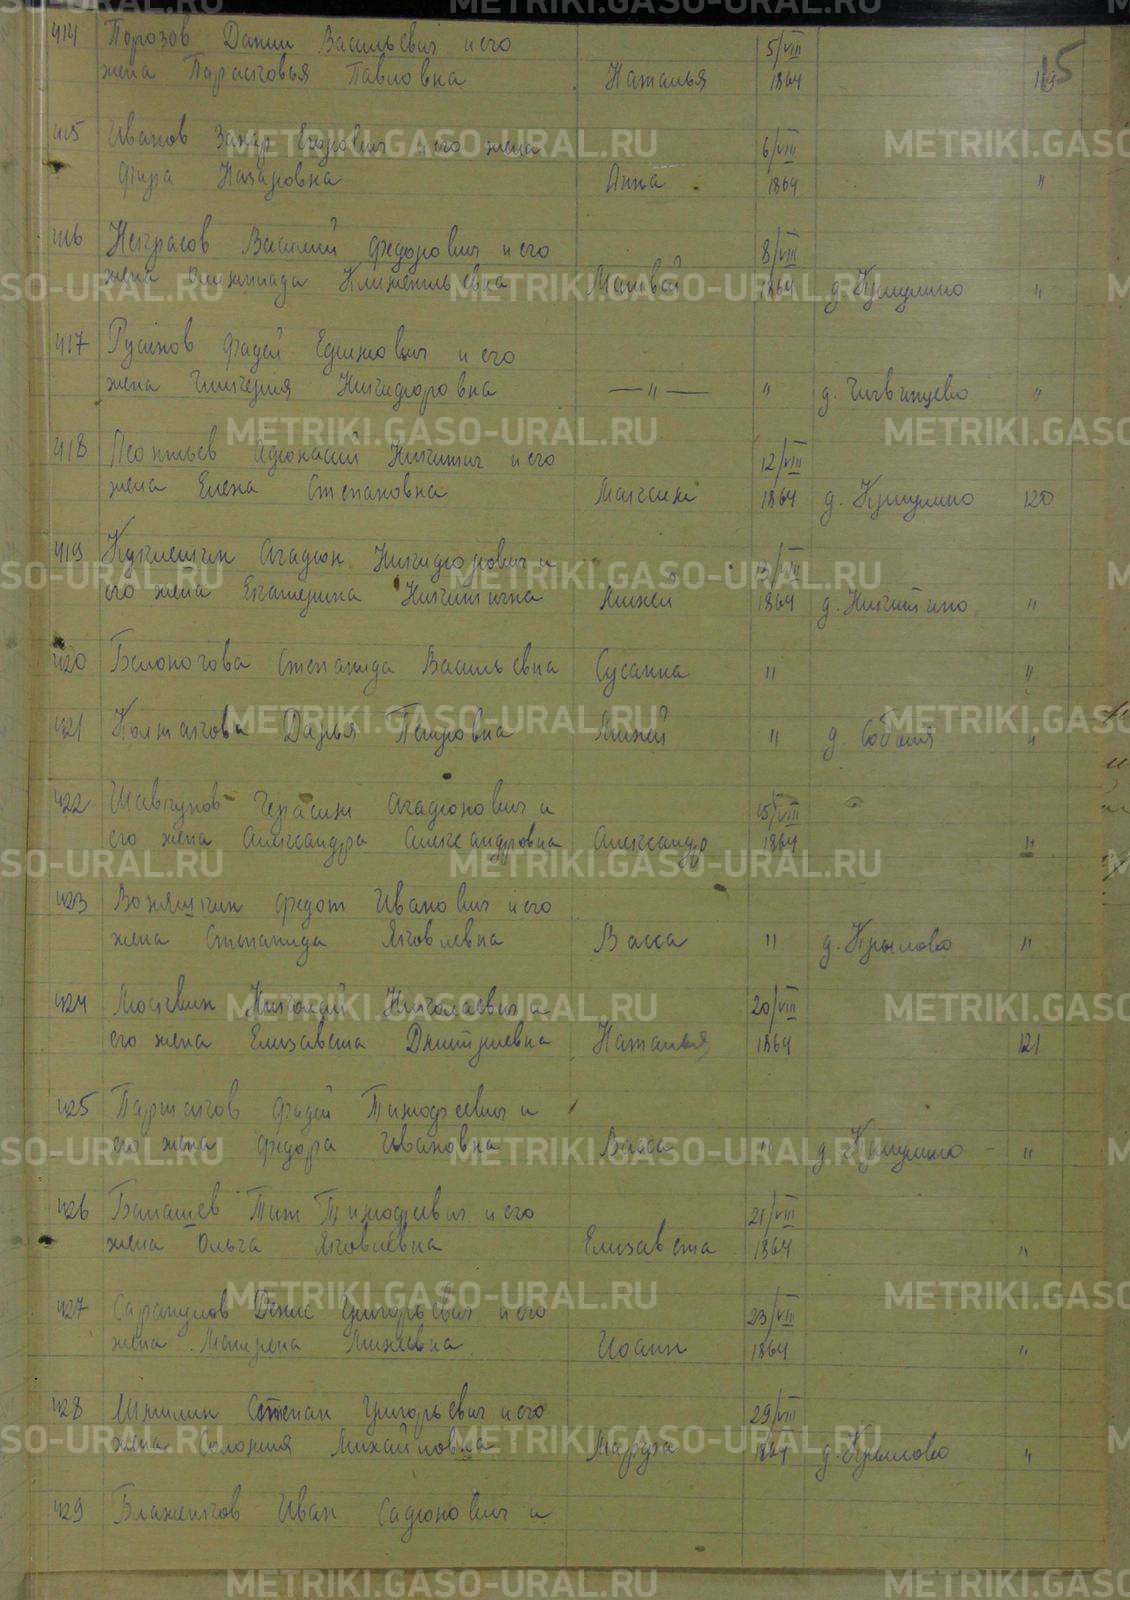 414 Порозов Данил Васильевич и его 5/VIII 15
жена Парасковья Павловна Наталья 1864
415 Иванов Захар Егорович и его жена 6/VIII
Фира Назаровна Анна 1864 "
416 Некрасов Василий Федорович и его 8/VIII
жена Олимпиада Климентьевна Матвей 1864 д. Кришулино "
417 Русинов Фадей Ефимович и его
жена Гликерия Никифоровна — " — " д. Чигвинцево "
418 Леонтьев Афонасий Никитич и его 12/VIII
жена Елена Степановна Максим 1864 д. Кришулино 120
419 Куклешин Агафон Никифорович и 13/VIII
его жена Екатерина Никитична Михей 1864 д. Никитино "
420 Белоногова Степанида Васильевна Сусанна " "
421 Колмакова Дарья Петровна Михей " д. Собакия "
422 Шавкунов Герасим Агафонович и 15/VIII
его жена Александра Александровна Александр 1864 "
423 Возняшкин Федот Иванович и его
жена Степанида Яковлевна Васса " д. Крылово "
424 Москвин Николай Николаевич и 20/VIII
его жена Елизавета Дмитриевна Наталья 1864 121
425 Пармаков Фадей Тимофеевич и
его жена Федора Ивановна Васса " д. Кришулино "
426 Балашев Тит Тимофеевич и его 21/VIII
жена Ольга Яковлевна Елизавета 1864 "
427 Сарапулов Денис Григорьевич и его 23/VIII
жена Матрена Михеевна Иоанн 1864 "
428 Степан Григорьевич и его 29/VIII
жена Соломия Михайловна Марфа 1864 д. Крылово "
429 Блаженков Иван Сафонович и